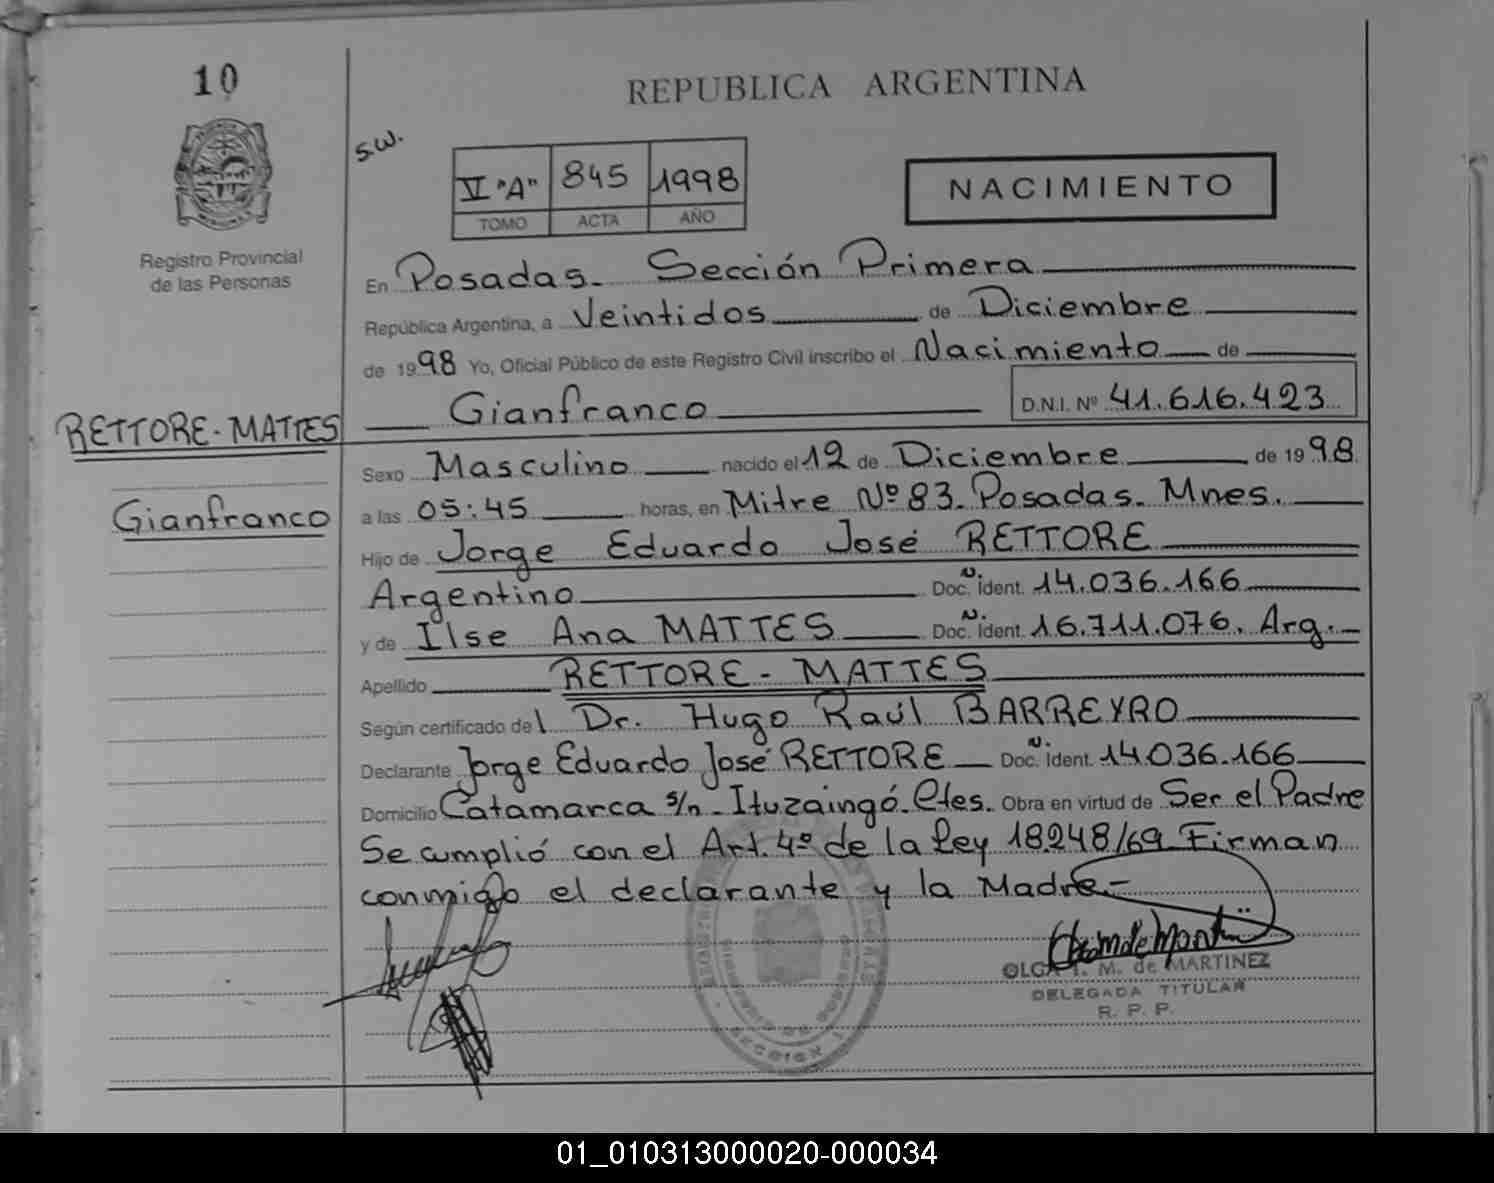 10
REPUBLICA ARGENTINA
s.w.
V "A" 845 1998
TOMO ACTA AÑO
NACIMIENTO
Registro Provincial
de las Personas
En Posadas. Sección Primera
República Argentina, a Veintidos de Diciembre
de 1998 Yo, Oficial Público de este Registro Civil inscribo el Nacimiento de
Gianfranco D.N.I. Nº 41.616.423
RETTORE-MATTES
Gianfranco
Sexo Masculino nacido el 12 de Diciembre de 1998
a las 05:45 horas, en Mitre Nº 83. Posadas. Mnes.
Hijo de Jorge Eduardo José RETTORE
Argentino Doc. N. Ident. 14.036.166
y de Ilse Ana MATTES Doc. N. Ident. 16.711.076. Arg.
Apellido RETTORE - MATTES
Según certificado del Dr. Hugo Raúl BARREYRO
Declarante Jorge Eduardo José RETTORE Doc. N. Ident. 14.036.166
Domicilio Catamarca s/n - Ituzaingó. Ctes. Obra en virtud de Ser el Padre
Se cumplió con el Art. 4º de la Ley 18.248/69 Firman
conmigo el declarante y la Madre.-
OLGA I. M. de MARTINEZ
DELEGADA TITULAR
R. P. P.
01_010313000020-000034